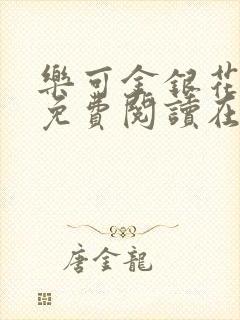 樂可金銀花
免費閱讀在
唐金龍